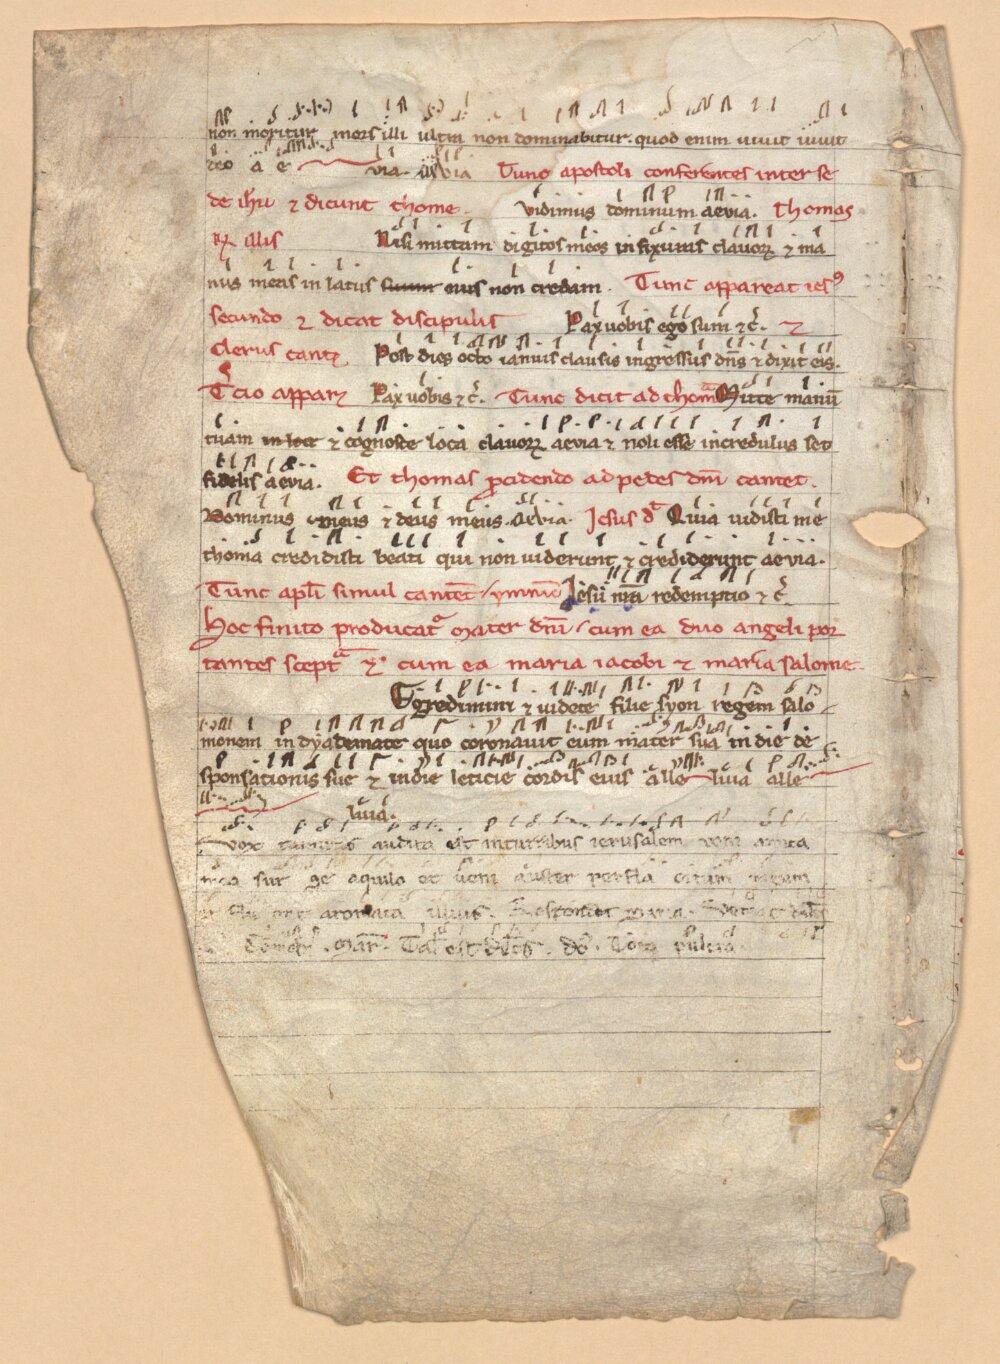 non moritur mors illi ultra non dominabitur. quod enim uiuit uiuit
deo a e uia. aeuia Tunc apostoli conferentes inter se
de ihu ⁊ dicunt thome. Vidimus dominum aeuia. Thomas
illis Nisi mittam digitos meos in fixuras clauoꝝ ⁊ ma
nus meas in latus suum eius non credam. Tunc appareat iesꝰ
secundo ⁊ dicat discipulis Pax uobis ego sum ⁊ c̄. ⁊
clerus cantꝫ Post dies octo ianuis clausis ingressus dn̄s ⁊ dixit eis.
T̄cio apparꝫ Pax uobis ⁊ c̄. Tunc dicit ad thomā Mitte manū
tuam in loca ⁊ cognosce loca clauoꝝ aeuia ⁊ noli esse incredulus set
fidelis aeuia. Et thomas p̱cidendo ad pedes dn̄i cantet.
Dominus meus ⁊ deus meus. aeuia. Jesus dᷓ Quia uidisti me
thoma credidisti beati qui non uiderunt ⁊ crediderunt aeuia.
Tunc apl̄i simul cantent ymnū Jesū nr̄a redemptio ⁊ c̄
Hoc finito producatᷓ mater dn̄i cum ea duo angeli por
tantes sceptᷓ ⁊ cum ea maria iacobi ⁊ maria salome.
Egredimini ⁊ uidete filie syon regem salo
monem in dyademate quo coronauit eum mater sua in die de
sponsationis sue ⁊ in die leticie cordis eius alle luia alle
luia.
Vox turturis audita est in turribus ierusalem ueni amica
mea sur ge aquilo et ueni auster perfla ortum meum
aromata illius.